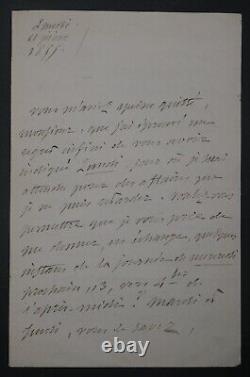 Samedi
1855
vous m'aviez à peine quitté,
monsieur, que j'ai éprouvé un
regret infini de vous avoir
indiqué Lundi, jour où je suis
attendu pour des affaires que
je ne puis retarder. voulez vous
permettre que je vous prie de
me donner, en échange, quelques
instans de la journée de mercredi
prochain, 13, vers 4 h de
l'après midi? mardi &
jeudi, vous le savez,